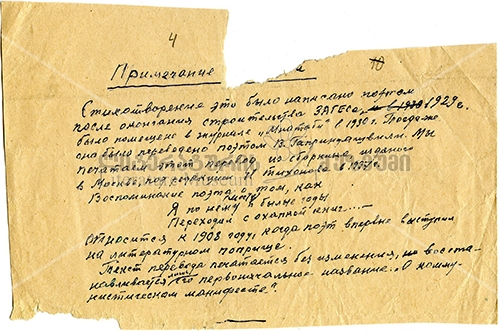 4
Примечание
10
Стихотворение это было написано поэтом
после окончания строительства ЗАГЕСа, в 1929 г.
было помещено в журнале „Мнатоби“ в 1930 г. Тогда же
оно было переведено поэтом В. Гаприндашвили. Мы
печатаем этот перевод из сборника изданного
в Москве, под редакцией Н. Тихонова в
Воспоминание поэта о том, как
Я по нему в былые годы
Переходил с охапкой книг...—
относится к 1908 году, когда поэт впервые выступил
на литературном поприще.
Текст перевода печатается без изменения, но восста-
навливается его первоначальное название „О комму-
нистическом манифесте“.